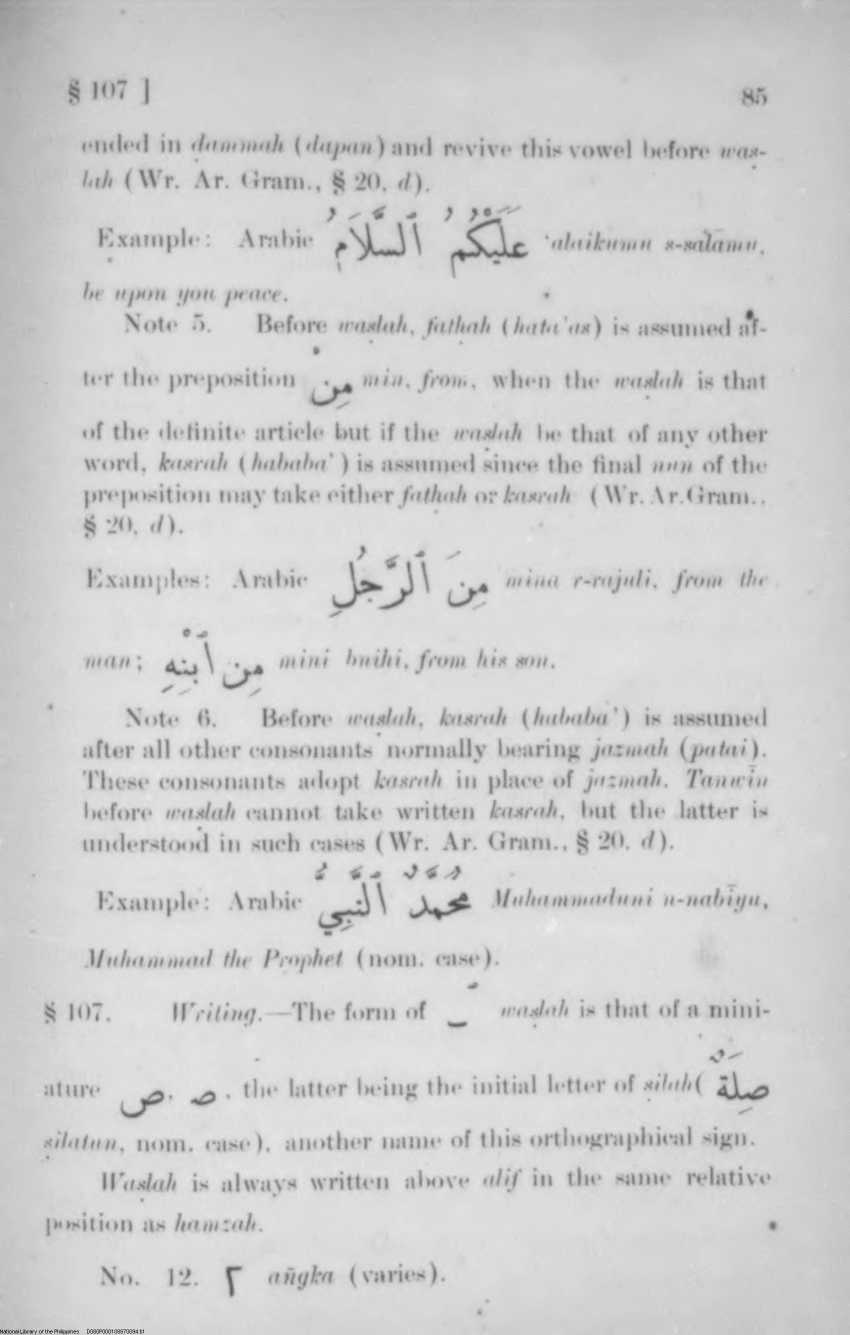 § 107 ] 85
ended in dammah (dapan) and revive this vowel before waṣ-
lah (Wr. Ar. Gram., § 20, d).
Example: Arabic عَلَيْكُمُ ٱلسَّلَامُ ‘alaikumu s-salāmu,
be upon you peace.
Note 5. Before waṣlah, fathah (hata'as) is assumed af-
ter the preposition مِن min, from, when the waṣlah is that
of the definite article but if the waṣlah be that of any other
word, kasrah (hababa') is assumed since the final nun of the
preposition may take either fathah or kasrah (Wr. Ar. Gram.,
§ 20, d).
Examples: Arabic مِنَ ٱلرَّجُلِ mina r-rajuli, from the
man; مِنِ ٱبْنِهِ mini bnihi, from his son.
Note 6. Before waṣlah, kasrah (hababa') is assumed
after all other consonants normally bearing jazmah (patai).
These consonants adopt kasrah in place of jazmah. Tanwīn
before waṣlah cannot take written kasrah, but the latter is
understood in such cases (Wr. Ar. Gram., § 20, d).
Example: Arabic مُحَمَّدٌ ٱلنَّبِيُّ Muhammaduni n-nabīyu,
Muhammad the Prophet (nom. case).
§ 107. Writing.—The form of waṣlah is that of a mini-
ature ص, صـ, the latter being the initial letter of ṣilah (صِلَةٌ
ṣilatun, nom. case), another name of this orthographical sign.
Waṣlah is always written above alif in the same relative
position as hamzah.
No. 12. ٢ añgka (varies).
National Library of the Philippines